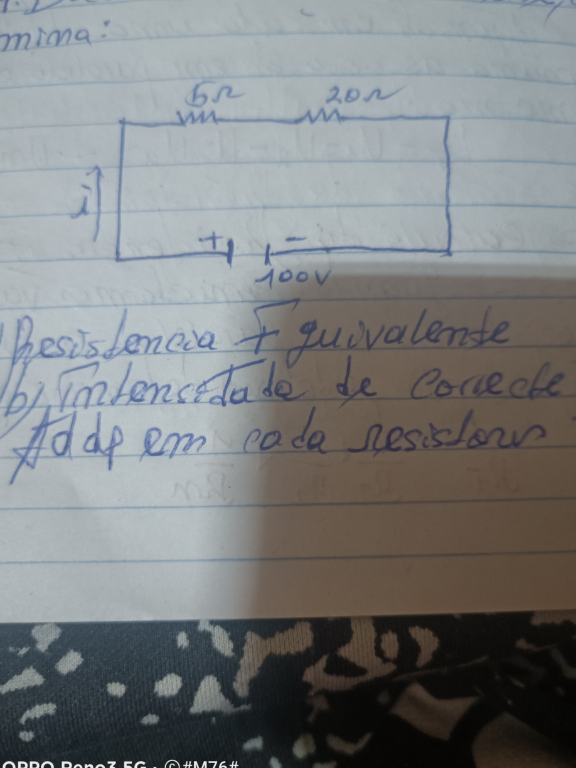 mina:
5Ω 20Ω
i
+ -
100V
Resistencia Equivalente
b) Intensidade de Correcte
A ddp em cada resistors
OPPO Reno3 5G · ©#M76#